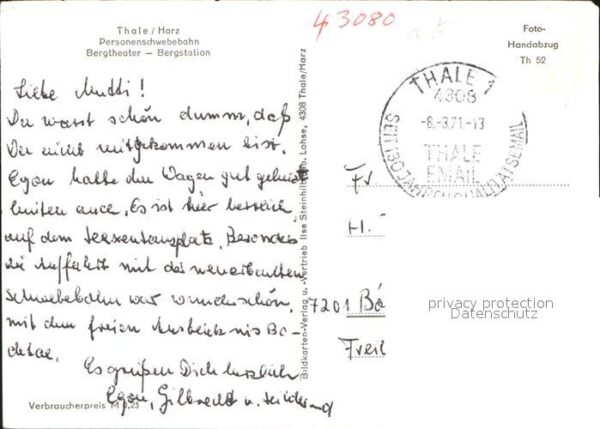 Thale / Harz
Personenschwebebahn
Bergtheater — Bergstation
43080
Foto-
Handabzug
Th 52
THALE 1
4308
-8.-3.71-13
THALE
EMAIL
SEIT 130 JAHREN QUALITÄTSEMAIL
Liebe Mutti!
Du warst schön dumm, daß
Du nicht mitgekommen bist.
Egon hatte den Wagen gut geheizt
hinten auch. Es ist hier herrlich
auf dem Hexentanzplatz. Besonders
die Auffahrt mit der neuerbauten
Schwebebahn war wunderschön,
mit dem freien Ausblick ins Bo-
detal.
Es grüßen Dich herzlich
Egon, Gilbrecht u.
Fr
H.
7201 Bö
Freil
Bildkarten-Verlag u. -Vertrieb Ilse Steinhilber, Lohse, 4308 Thale/Harz
privacy protection
Datenschutz
Verbraucherpreis M 0,25